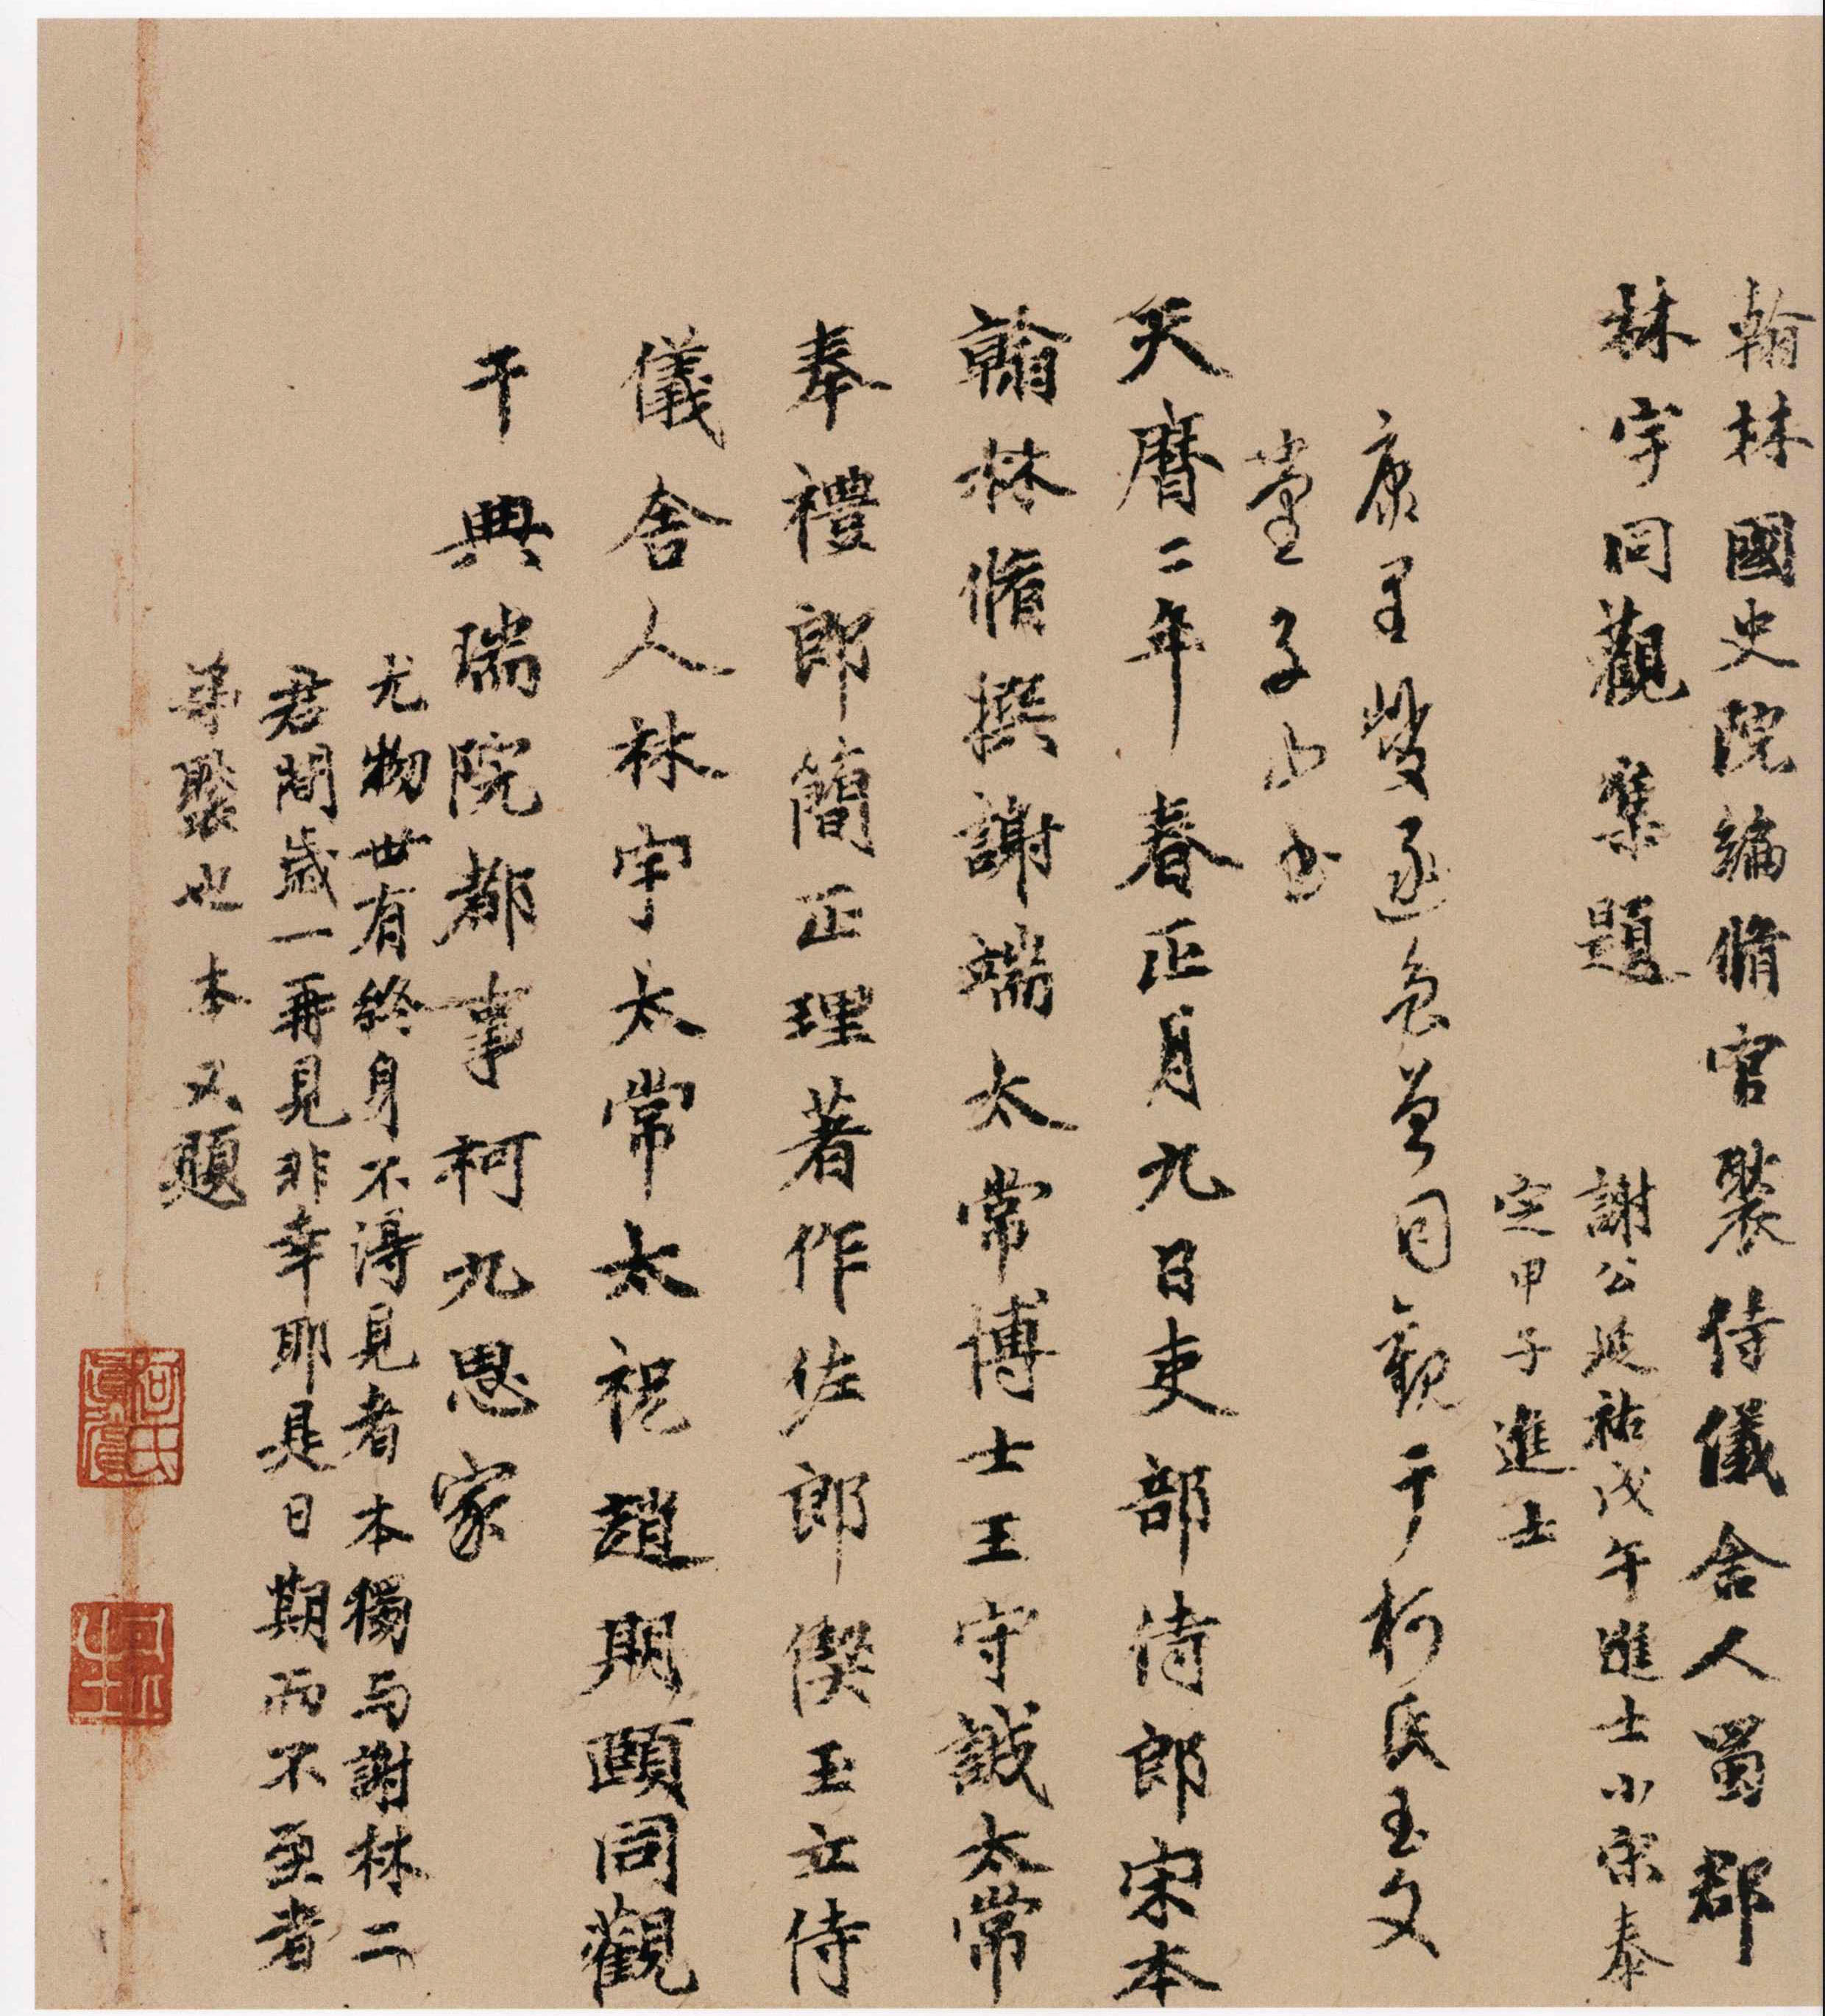 翰林國史院編脩官褧侍儀舍人蜀郡
林宇同觀 集題
謝公延祐戊午進士小宋泰
定甲子進士
康里巎逯魯曾同觀于柯氏玉文
堂子山書
天曆二年春正月九日吏部侍郎宋本
翰林脩撰謝端太常博士王守誠太常
奉禮郎簡正理著作佐郎偰玉立侍
儀舍人林宇太常太祝趙期頤同觀
于典瑞院都事柯九思家
尤物世有終身不得見者本獨与謝林二
君間歲一再見非幸耶是日期而不至者
弟褧也 本又題
柯氏真賞